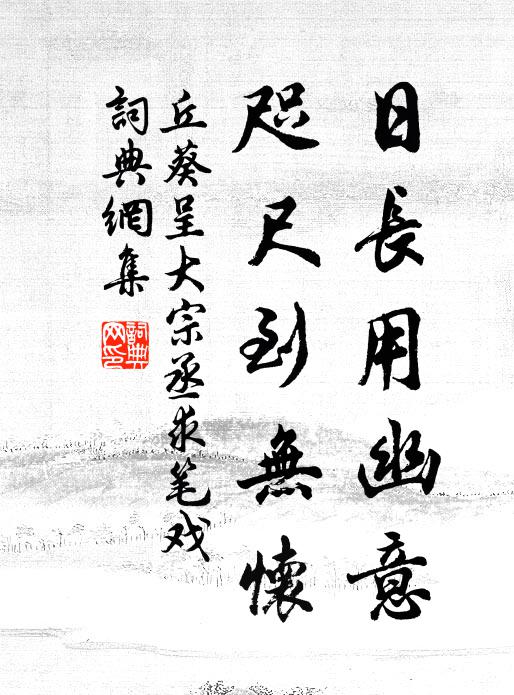 日長用幽意
咫尺到無懷
丘葵呈大宗丞求笔戏
詞典網集
詞典网印